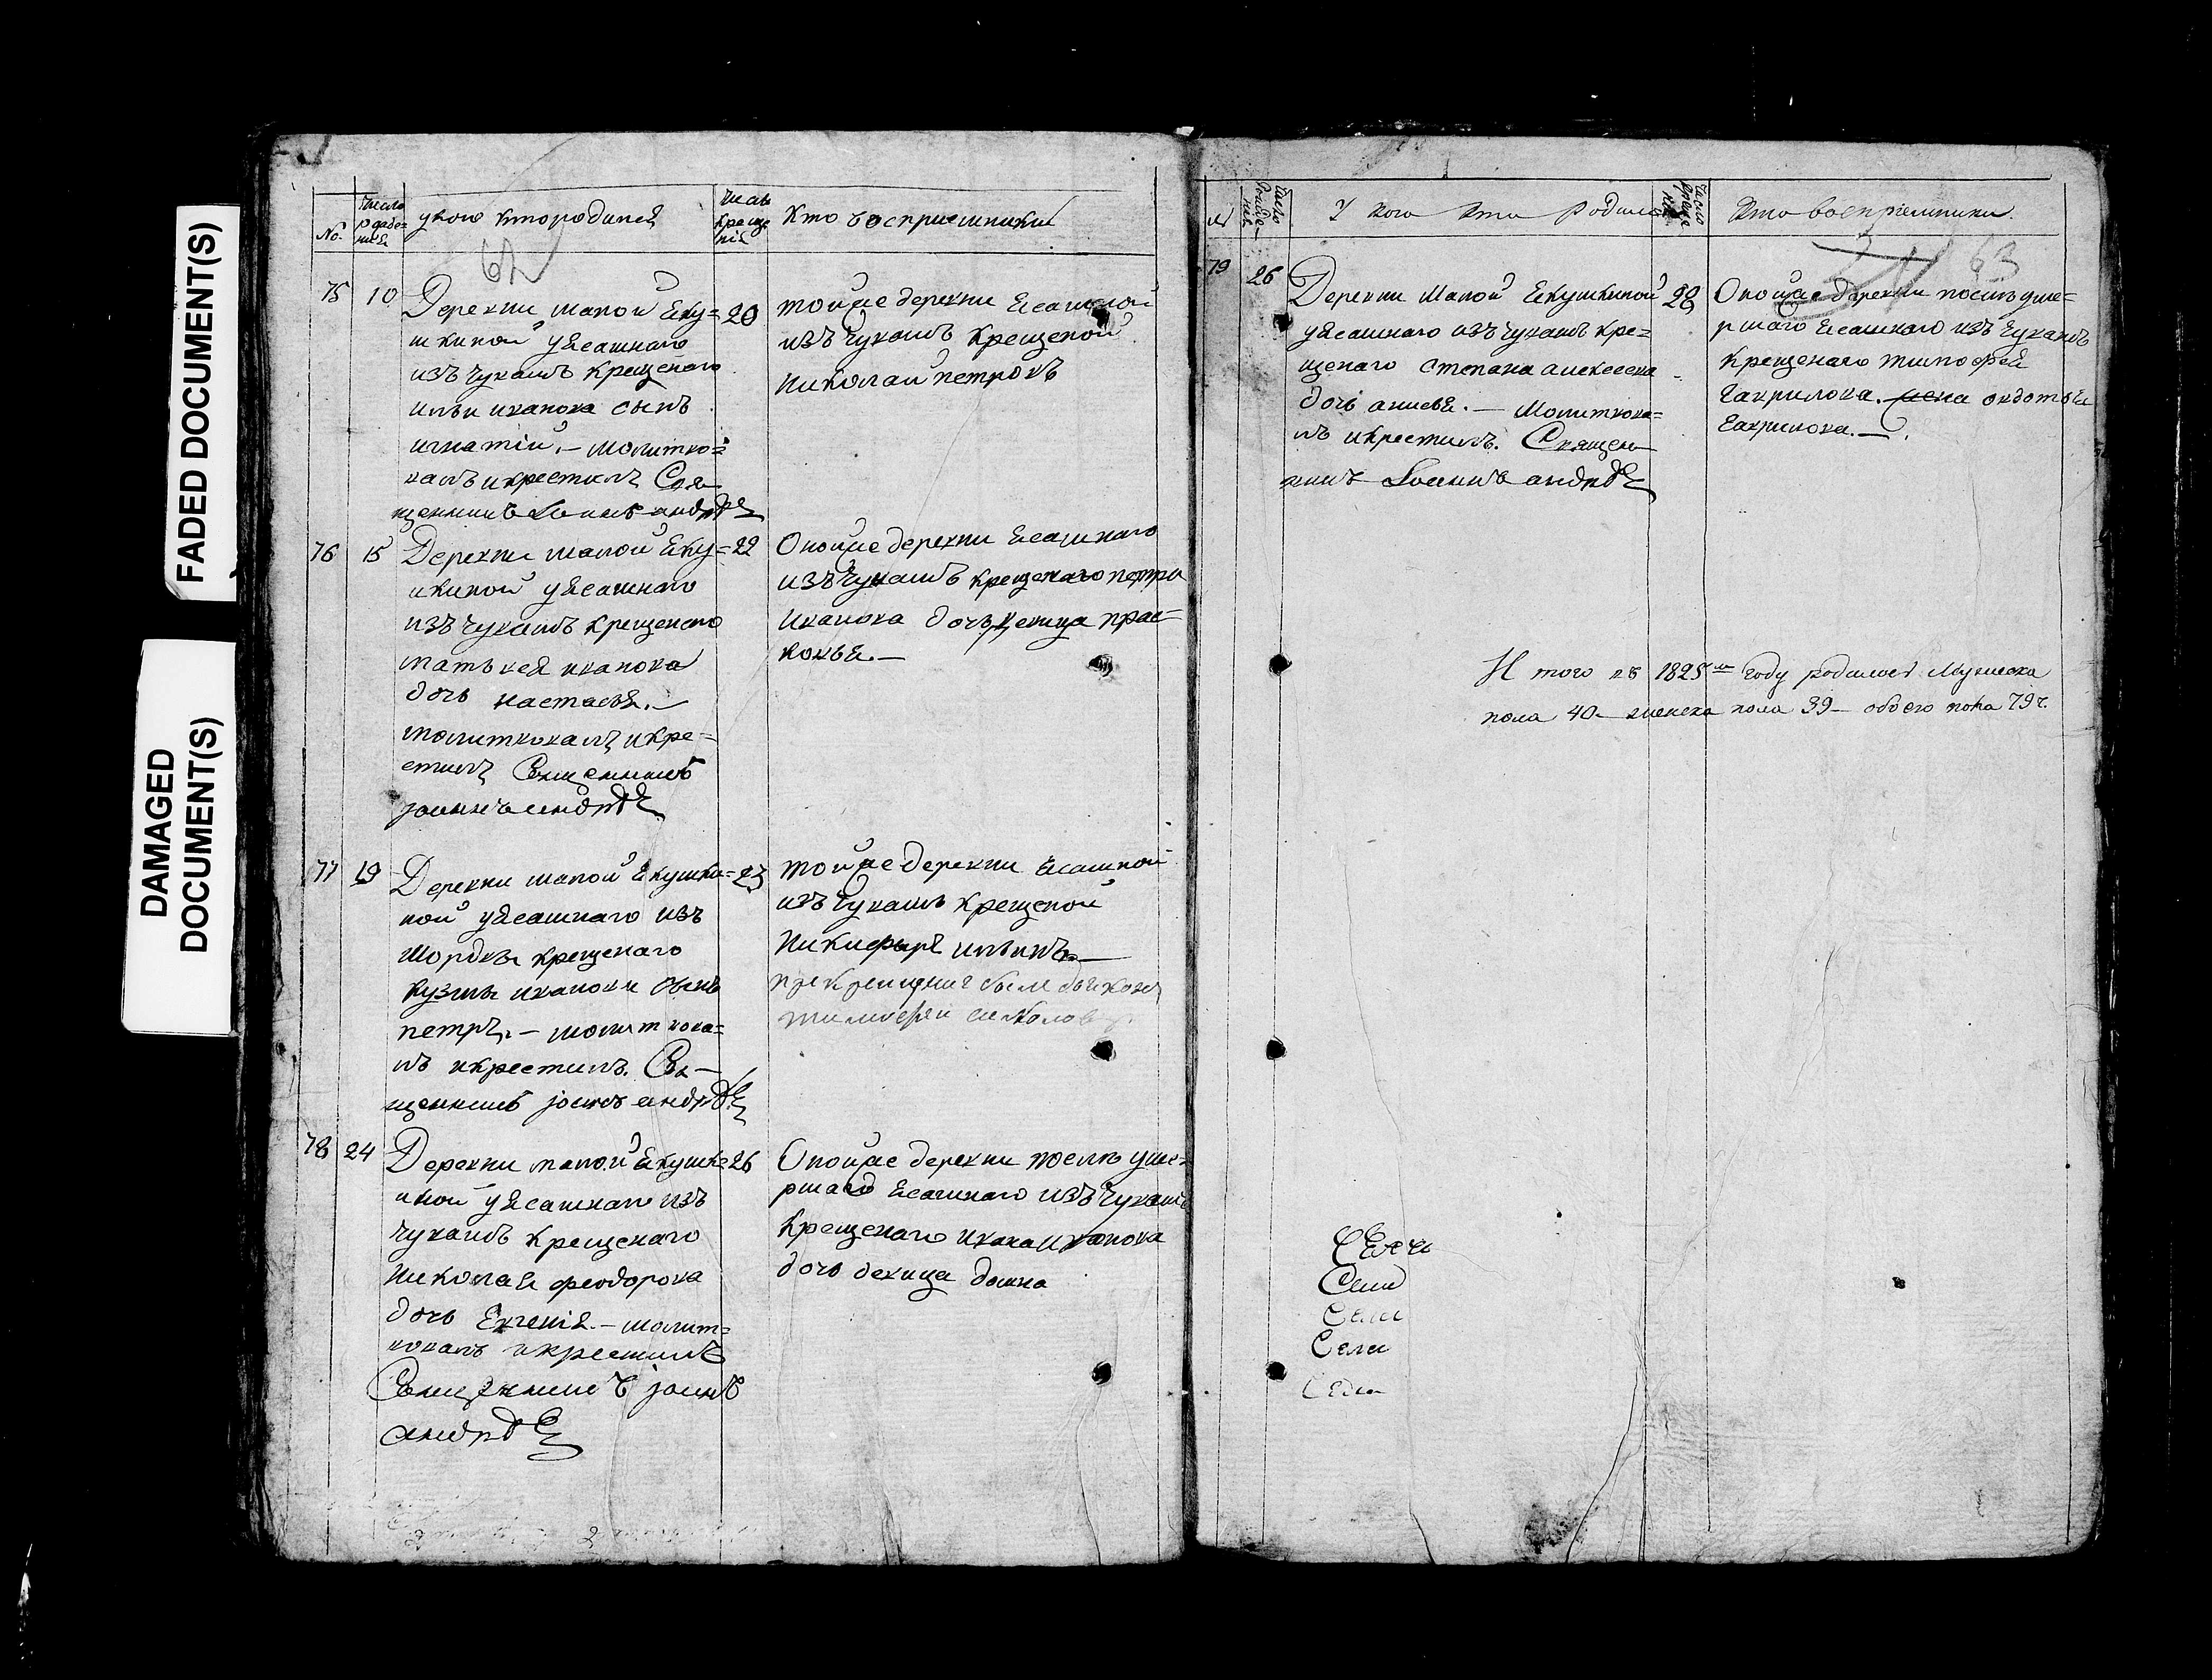 FADED DOCUMENT(S)
DAMAGED
DOCUMENT(S)
No.
Число
рожде=
нiя
укого кто родился
Число
креще
нiя
Кто восприемники
62
75
10
Деревни малой Яку=
шкиной уясашнаго
изъ чувашъ крещенаго
ильи иванова сынъ
игнатiй. – молитво=
валъ икрестилъ Свя
щенникъ Iоаннъ андрѣ
20
тойже деревни Ясашной
изъ чувашъ крещеной
Николай петровъ
76
15
Деревни малой Яку=
шкиной уясашнаго
изъ чувашъ крещенаго
матвея иванова
дочь настасья. –
молитвовалъ икре=
стилъ Священникъ
iоаннъ андрѣ
22
Оной же деревни Ясашнаго
изъ чувашъ крещенаго петра
Иванова дочь девица прас=
ковья. –
77
19
Деревни малой Якушки=
ной уясашнаго изъ
Мордвы крещенаго
кузмы иванова сынъ
петръ. – молитвова=
лъ икрестилъ. Свя–
щенникъ iоаннъ андрѣ
23
тойже деревни Ясашной
изъ чувашъ крещеной
Никифыръ ильинъ. –
78
24
Деревни малой Якушк=
иной уясашнаго изъ
чувашъ крещенаго
Николая феодорова
дочь Евгенiя. – молит=
вовалъ икрестилъ
Священникъ iоаннъ
андрѣ
26
Оной же деревни послѣ уме=
ршаго Ясашнаго изъ чувашъ
крещенаго ивана иванова
дочь девица домна
№
Число
рожде
нiя
У кого кто родился
Число
креще
нiя
Кто воспрiемники.
63
79
26
Деревни Малой Якушкиной
уясашнаго изъ чувашъ кре=
щенаго степана алексеева
дочь анисья. – Молитвова=
лъ икрестилъ. Священ
никъ Iоаннъ андрѣ
28
Оной же деревни послѣ уме=
ршаго Ясашнаго изъ чувашъ
крещенаго тимофея
Гаврилова. жена овдотья
Гаврилова. –
И того въ 1825м году родилось Мужеска
пола 40 – женска пола 39 – обоего пола 79 ч.
Сели
Сели